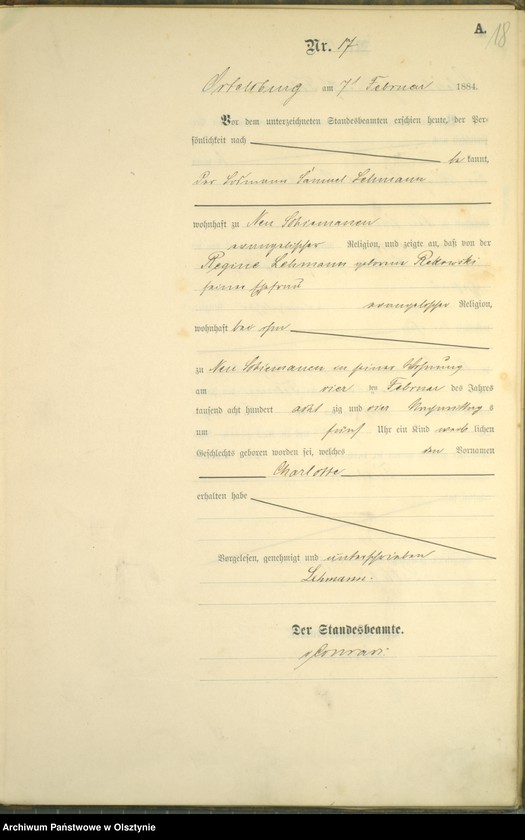 A. 18
Nr. 17
Ortelsburg am 7ᵗ Februar 1884.
Vor dem unterzeichneten Standesbeamten erschien heute, der Per-
sönlichkeit nach
bekannt,
Der Losmann Samuel Lehmann
wohnhaft zu Neu Schiemanen
evangelischer Religion, und zeigte an, daß von der
Regine Lehmann geborene Rekowski
seiner Ehefrau
evangelischer Religion,
wohnhaft bei ihm
zu Neu Schiemanen in seiner Wohnung
am vier ten Februar des Jahres
tausend acht hundert acht zig und vier Nachmittag s
um fünf Uhr ein Kind weib lichen
Geschlechts geboren worden sei, welches den Vornamen
Charlotte
erhalten habe
Vorgelesen, genehmigt und unterschrieben
Lehmann.
Der Standesbeamte.
Conrad.
Archiwum Państwowe w Olsztynie